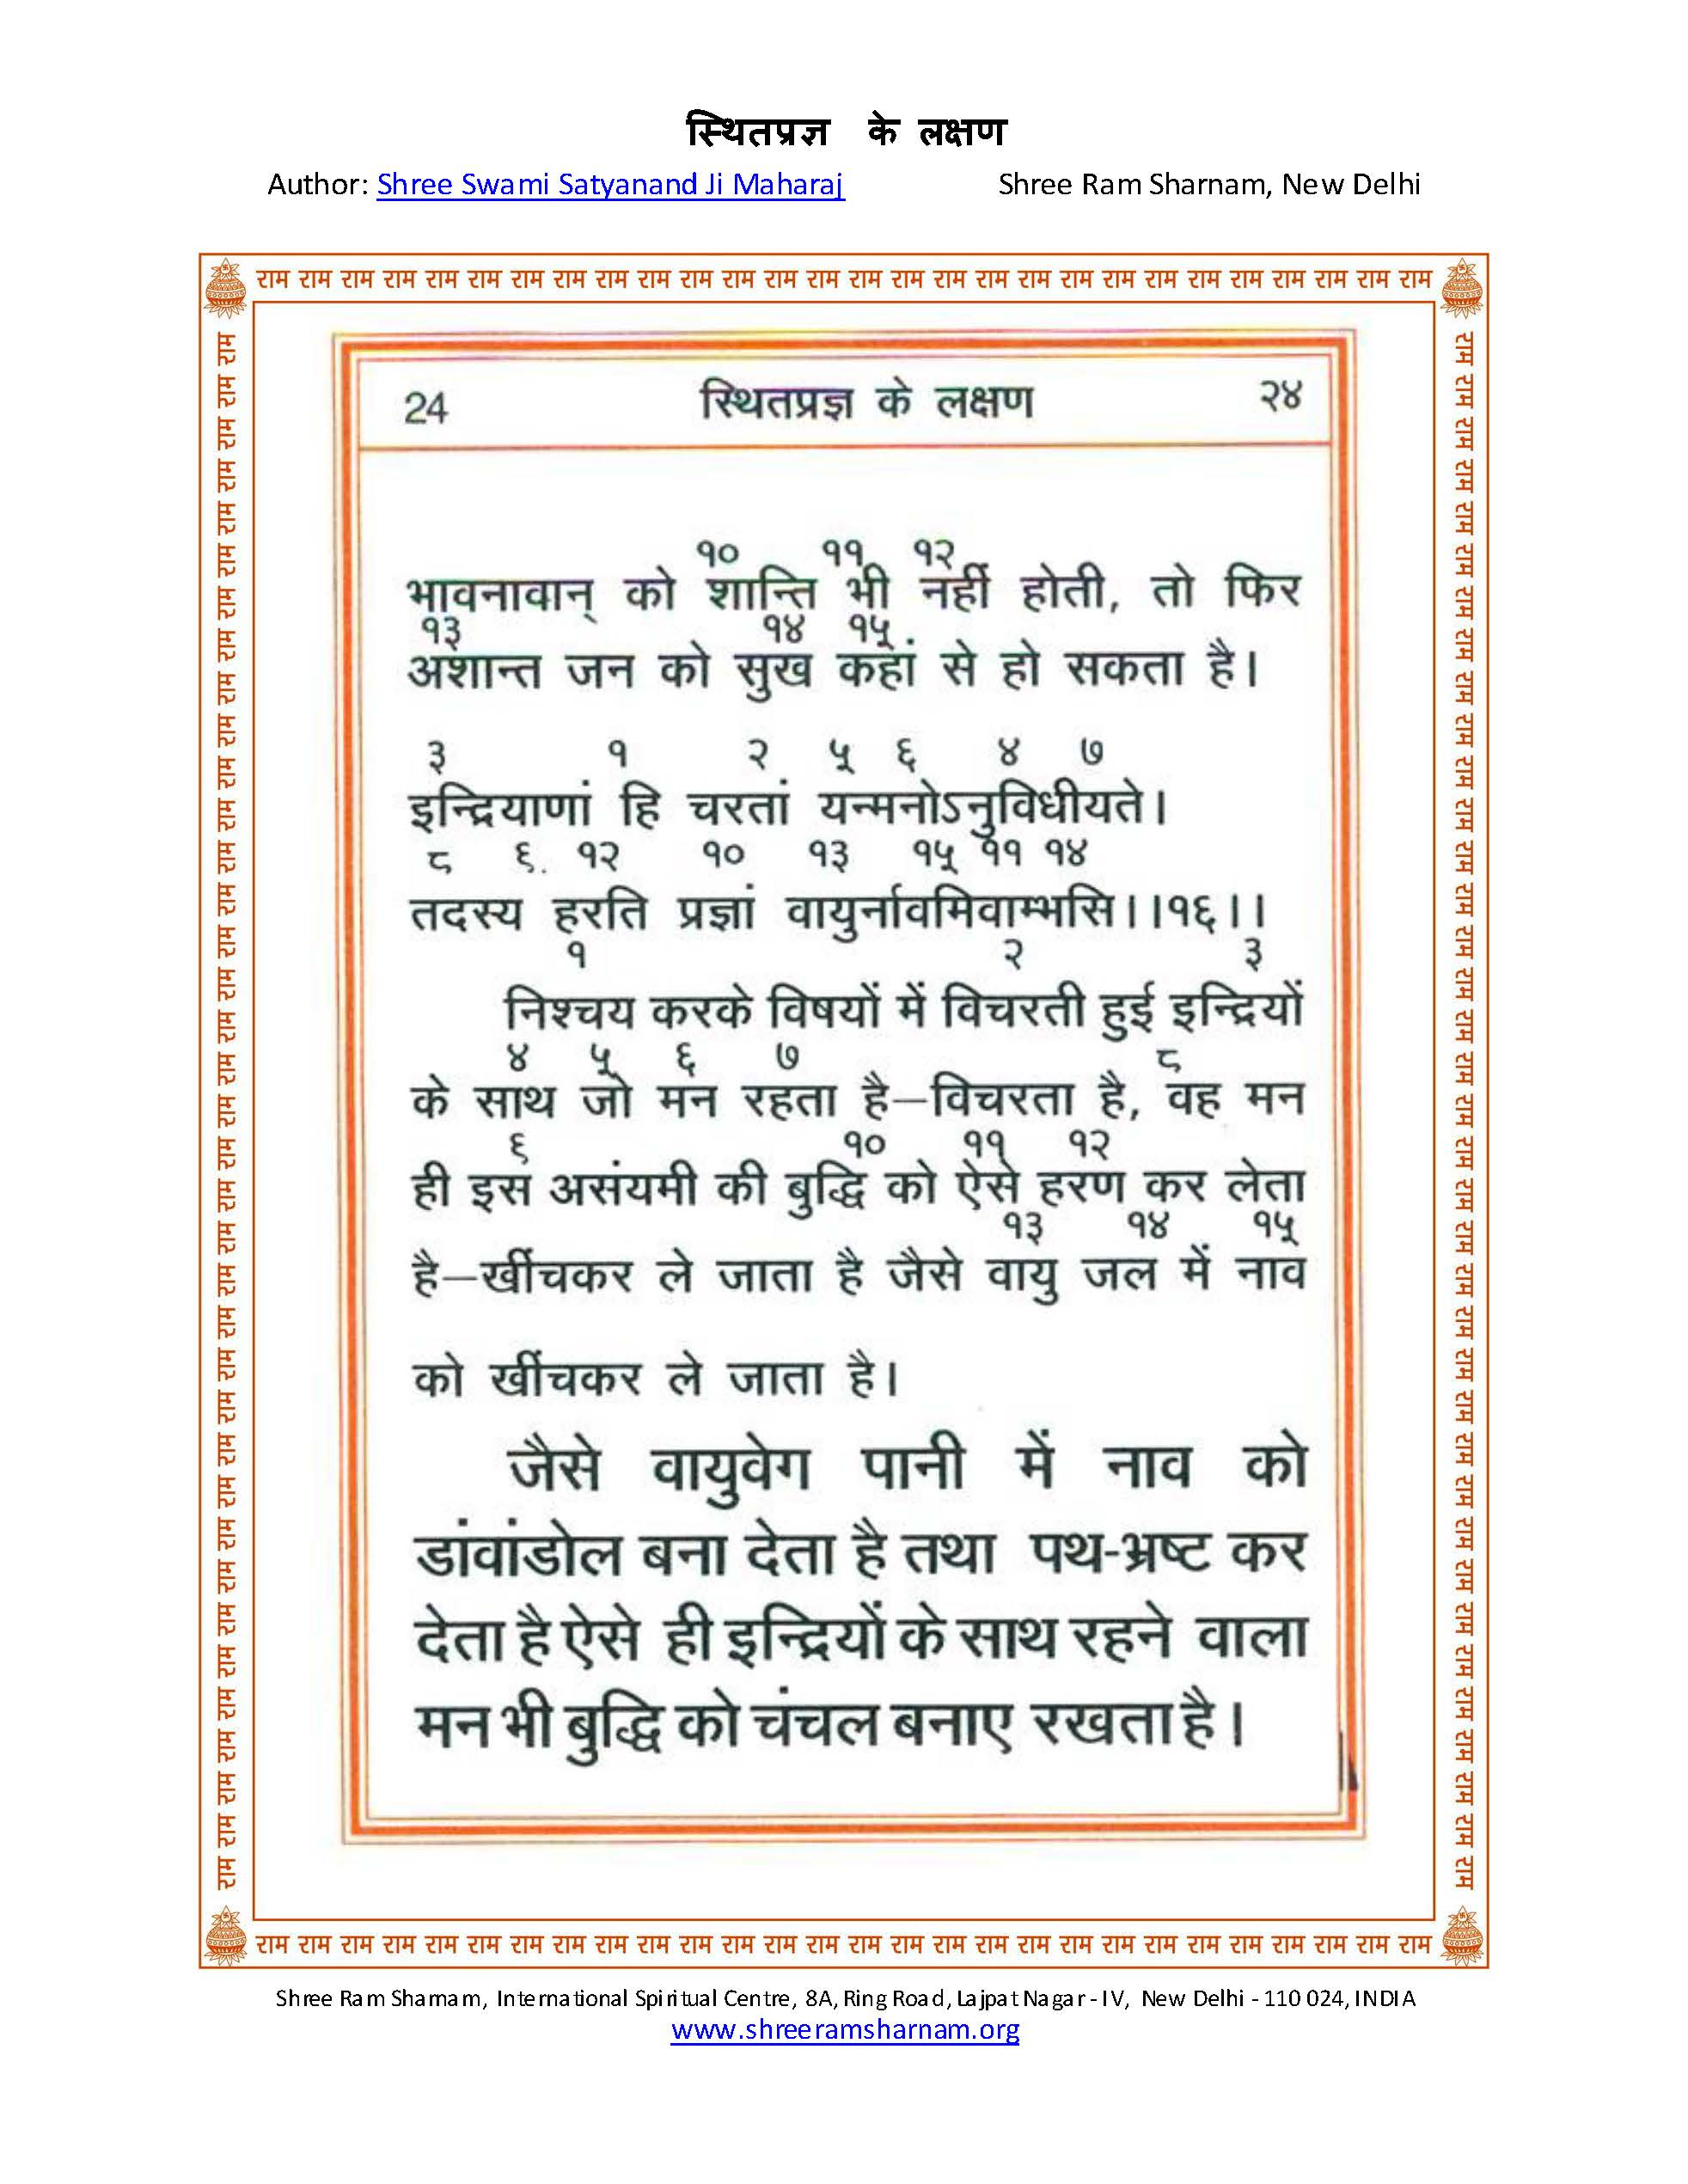 स्थितप्रज्ञ के लक्षण
Author: Shree Swami Satyanand Ji Maharaj Shree Ram Sharnam, New Delhi
राम राम राम राम राम राम राम राम राम राम राम राम राम राम राम राम राम राम राम राम राम राम राम राम राम राम राम राम
24 स्थितप्रज्ञ के लक्षण २४
१० ११ १२
भावनावान् को शान्ति भी नहीं होती, तो फिर
१३ १४ १५
अशान्त जन को सुख कहां से हो सकता है।
३ १ २ ५ ६ ४ ७
इन्द्रियाणां हि चरतां यन्मनोऽनुविधीयते।
८ ९. १२ १० १३ १५ ११ १४
तदस्य हरति प्रज्ञां वायुर्नावमिवाम्भसि।।१६।।
१ २ ३
निश्चय करके विषयों में विचरती हुई इन्द्रियों
४ ५ ६ ७ ८
के साथ जो मन रहता है–विचरता है, वह मन
९ १० ११ १२
ही इस असंयमी की बुद्धि को ऐसे हरण कर लेता
१३ १४ १५
है–खींचकर ले जाता है जैसे वायु जल में नाव
को खींचकर ले जाता है।
जैसे वायुवेग पानी में नाव को
डांवांडोल बना देता है तथा पथ-भ्रष्ट कर
देता है ऐसे ही इन्द्रियों के साथ रहने वाला
मन भी बुद्धि को चंचल बनाए रखता है।
राम राम राम राम राम राम राम राम राम राम राम राम राम राम राम राम राम राम राम राम राम राम राम राम राम राम राम राम
राम राम राम राम राम राम राम राम राम राम राम राम राम राम राम राम राम राम राम राम राम राम राम राम राम राम राम राम राम राम राम राम राम राम राम राम राम
राम राम राम राम राम राम राम राम राम राम राम राम राम राम राम राम राम राम राम राम राम राम राम राम राम राम राम राम राम राम राम राम राम राम राम राम राम
Shree Ram Sharnam, International Spiritual Centre, 8A, Ring Road, Lajpat Nagar - IV, New Delhi - 110 024, INDIA
www.shreeramsharnam.org